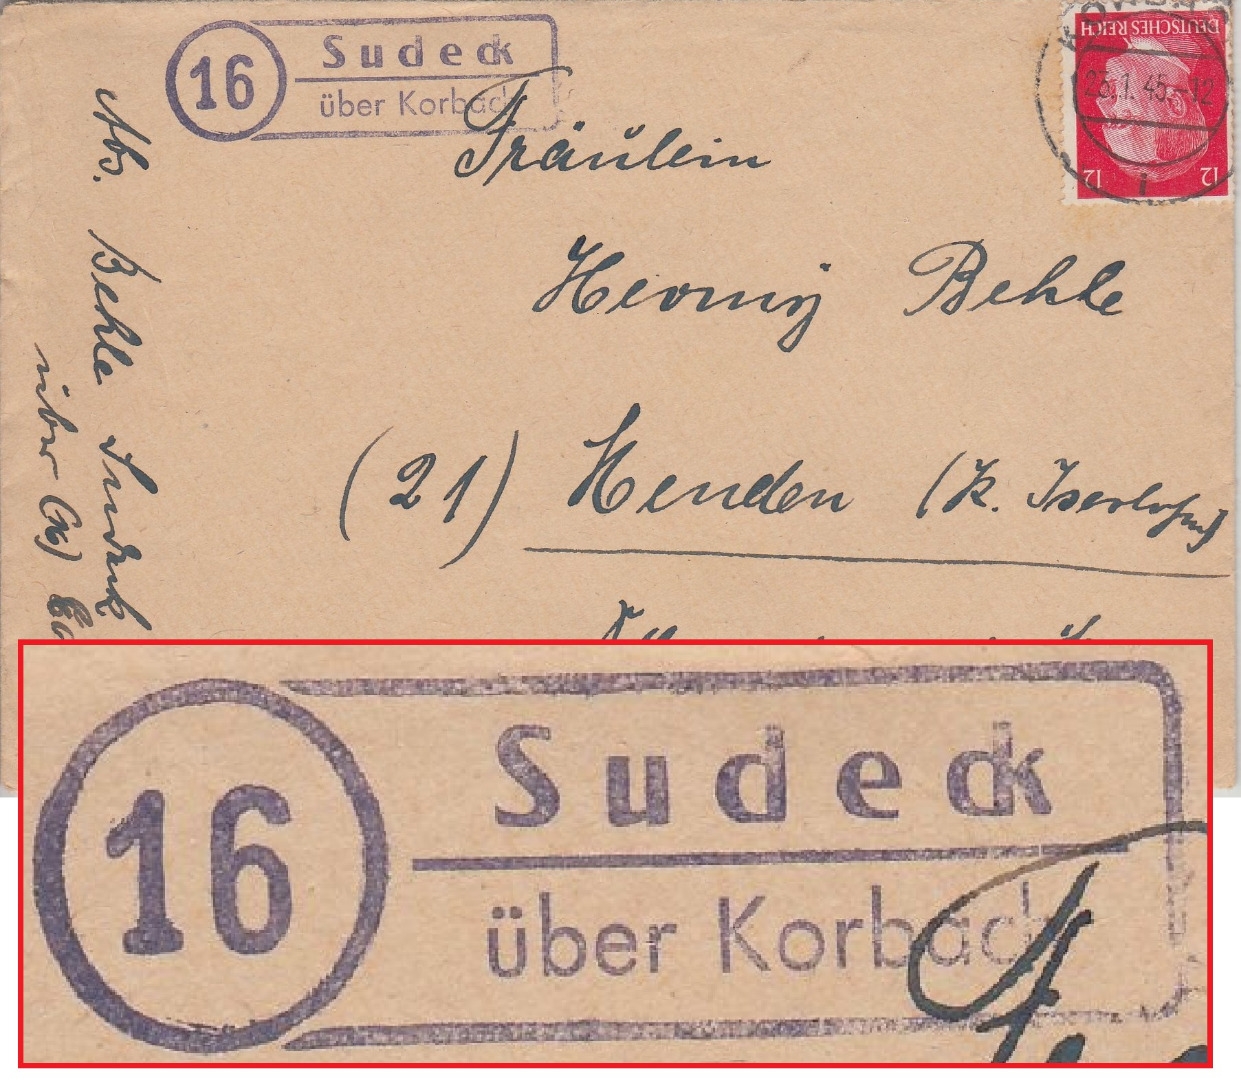 16
Sudeck
über Korbach
DEUTSCHES REICH
25.1.45.-12
12 12
Fräulein
Henny Behle
(21) Menden (K. Iserlohn)
Abs. Behle Sudeck
über (16)
16
Sudeck
über Korbach